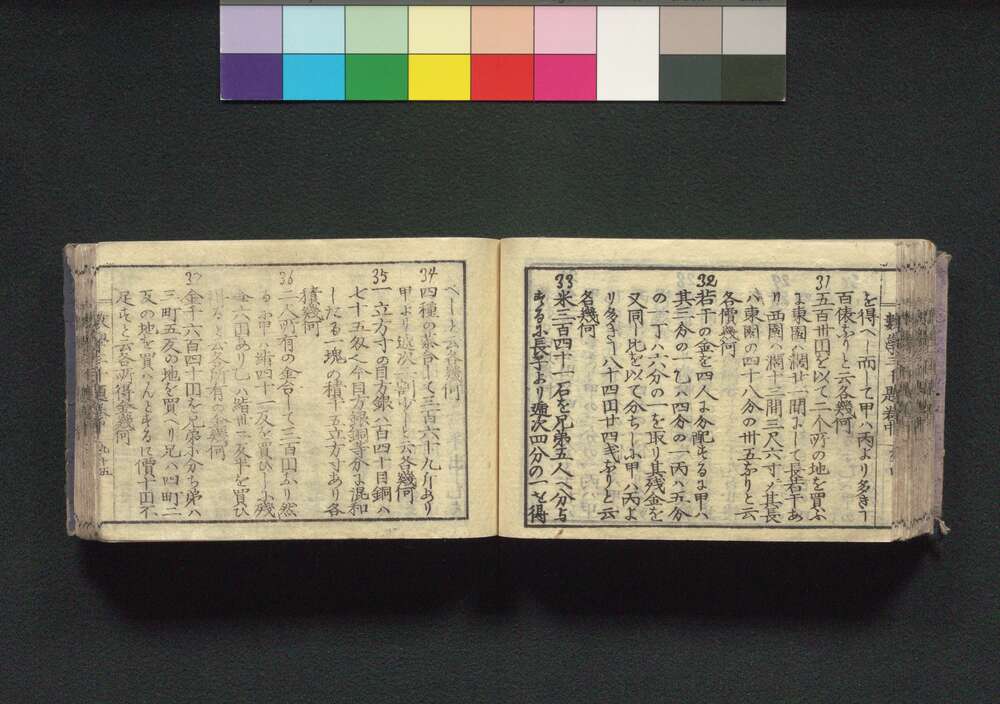 を得し而して甲ハ丙より多き丁
百俵なりと云各幾何
31
五百丗囬を以て二个所の地を買ふ
に東國ハ濶廿二間にして長若干あ
り西國ハ濶十二間三尺六寸〆其長
ハ東國の四十八分の丗五なりと云
各價幾何
32
若干の金を四人に分配するに甲ハ
其三分の一乙ハ四分の一丙ハ五分
の一丁ハ六分の一を取り其残金を
又同し比を以て分ちしに甲ハ丙よ
り多き丁八十四囬廿四戋なりと云
各幾何
33
米三百四十一石を兄弟五人へ分与
するに長子より逓次四分の一を得
へしと云各幾何
34
四種の茶合して三百六十九斤あり
甲より逓次二割
しと云各幾何
35
一立方寸の目方銀ハ百四十目銅ハ
七十五匁今目方銀銅等分に混和
したる一塊の積十五立方寸あり各
積幾何
36
二人所有の金合して三百囬あり然
るに甲ハ緒四十二反を買ひしに残
金六囬あり乙ハ緒丗二反半を買ひ
と云各所有の金幾何
37
金千六百四十囬を兄弟に分ち弟ハ
三町五反の地を買へり兄ハ四町二
反の地を買ハんとするに價十囬不
足すと云各所得金幾何
九十五